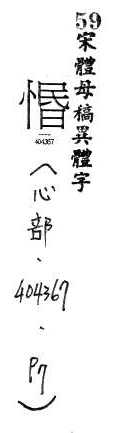 59宋體母稿異體字
惽
404367
(心部．404367．P7)